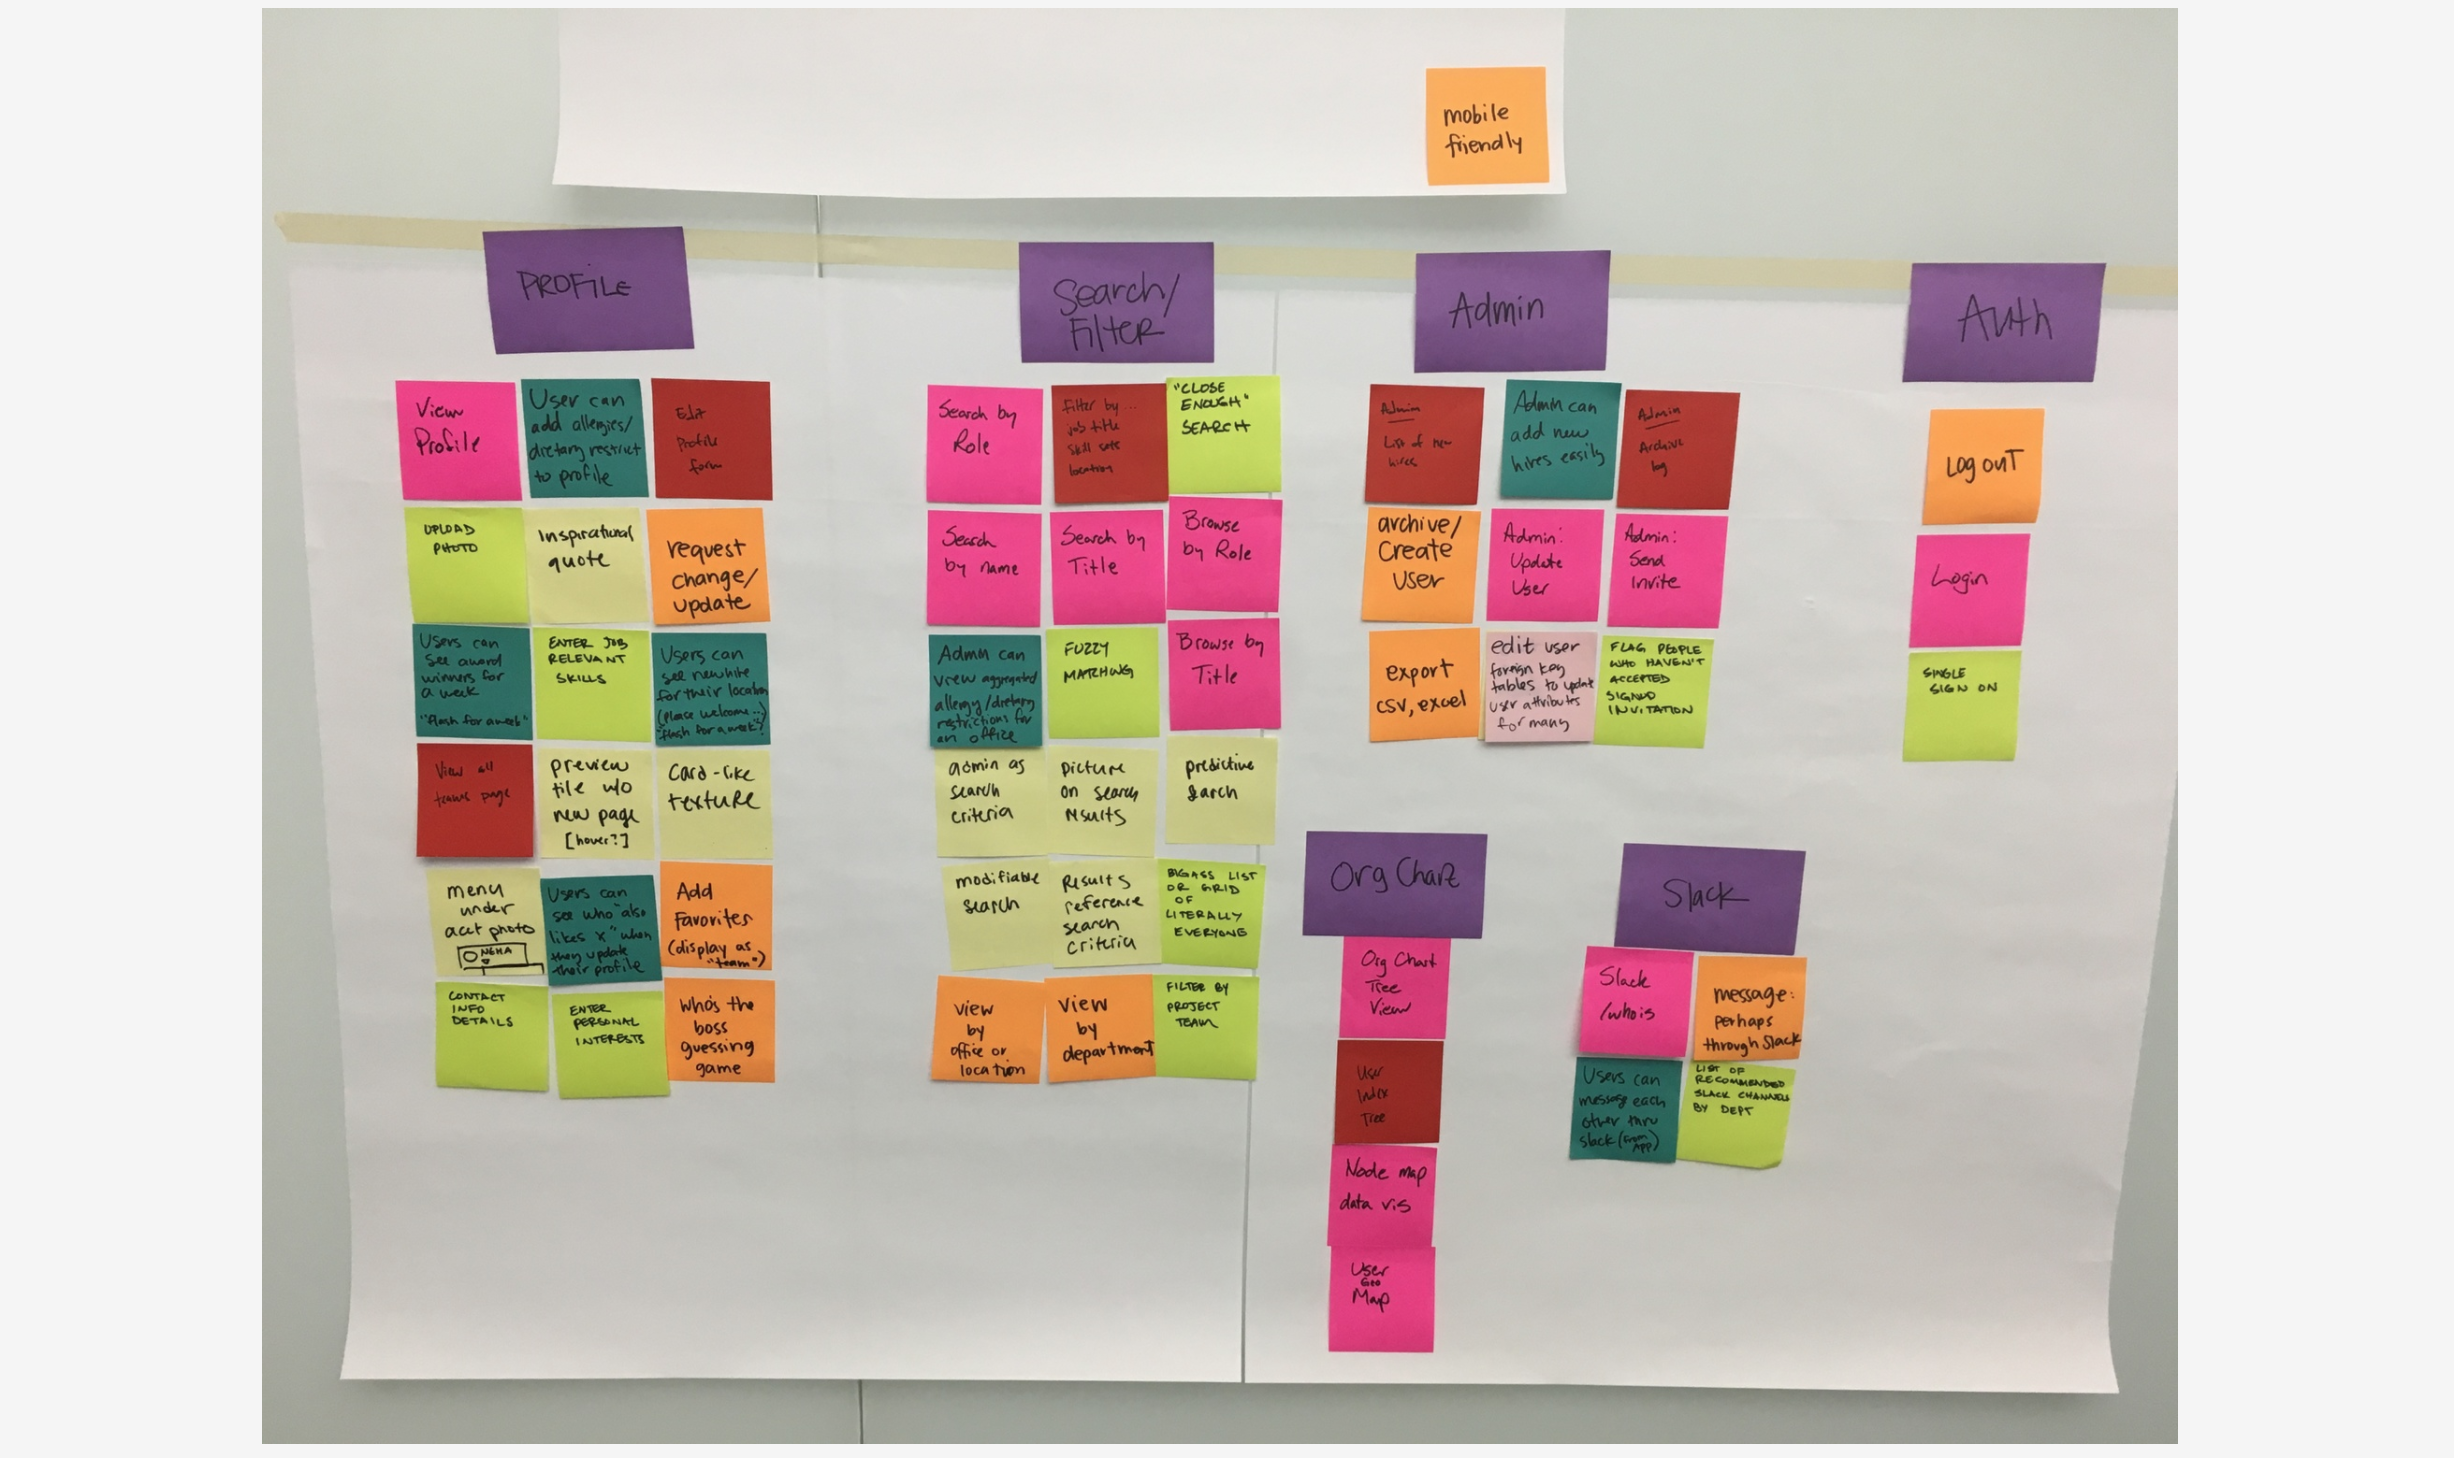 mobile
friendly
PROFILE
View
Profile
User can
add allergies/
dietary restrict
to profile
Edit
Profile
form
UPLOAD
PHOTO
Inspirational
quote
request
change/
update
Users can
see award
winners for
a week
"flash for a week"
ENTER JOB
RELEVANT
SKILLS
Users can
see new hire
for their location
(please welcome...)
"flash for a week"?
View all
teams page
preview
tile w/o
new page
[hover?]
Card-like
texture
menu
under
acct photo
NEHA
Users can
see who "also
likes x" when
they update
their profile
Add
Favorites
(display as
"team")
CONTACT
INFO
DETAILS
ENTER
PERSONAL
INTERESTS
Who's the
boss
guessing
game
Search/
Filter
Search by
Role
Filter by...
job title
skill sets
location
"CLOSE
ENOUGH"
SEARCH
Search
by name
Search by
Title
Browse
by Role
Admin can
view aggregated
allergy/dietary
restrictions for
an office
FUZZY
MATCHING
Browse by
Title
admin as
search
criteria
picture
on search
results
predictive
search
modifiable
search
Results
reference
search
criteria
BIGASS LIST
OR GRID
OF
LITERALLY
EVERYONE
view
by
office or
location
view
by
department
FILTER BY
PROJECT
TEAM
Admin
Admin
List of new
hires
Admin can
add new
hires easily
Admin
Archive
log
archive/
Create
user
Admin:
Update
User
Admin:
Send
Invite
export
csv, excel
edit user
foreign key
tables to update
user attributes
for many
FLAG PEOPLE
WHO HAVEN'T
ACCEPTED
SIGNUP
INVITATION
Auth
Log out
Login
SINGLE
SIGN ON
Org Chart
Org Chart
Tree
View
User
Index
Tree
Node map
data vis
User
Geo
Map
Slack
Slack
/whois
message:
perhaps
through Slack
Users can
message each
other thru
slack (from
APP)
LIST OF
RECOMMENDED
SLACK CHANNELS
BY DEPT